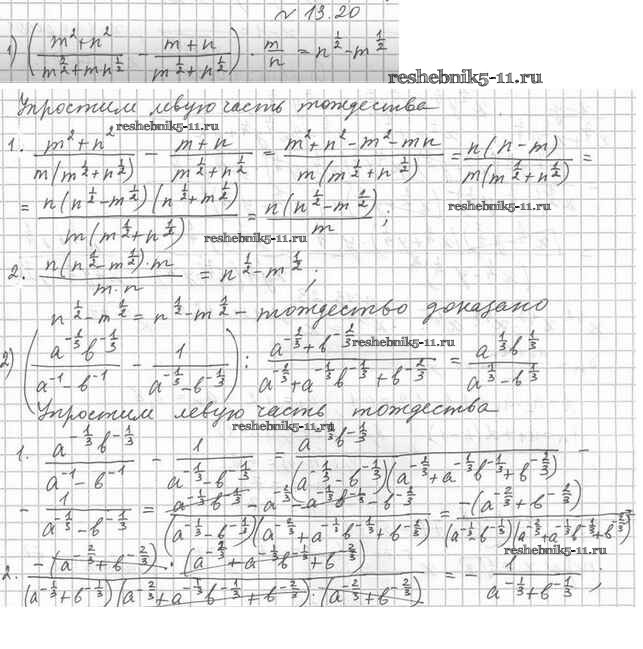 № 13.20
1) ( (m² + n²)/(m^(3/2) + mn^(1/2)) − (m + n)/(m^(1/2) + n^(1/2)) ) · m/n = n^(1/2) − m^(1/2)
reshebnik5-11.ru
Упростим левую часть тождества
reshebnik5-11.ru
1. (m² + n²)/(m(m^(1/2) + n^(1/2))) − (m + n)/(m^(1/2) + n^(1/2)) = (m² + n² − m² − mn)/(m(m^(1/2) + n^(1/2))) = n(n − m)/(m(m^(1/2) + n^(1/2))) =
= n(n^(1/2) − m^(1/2))(n^(1/2) + m^(1/2))/(m(m^(1/2) + n^(1/2))) = n(n^(1/2) − m^(1/2))/m ;
reshebnik5-11.ru
reshebnik5-11.ru
2. n(n^(1/2) − m^(1/2)) · m/(m · n) = n^(1/2) − m^(1/2) ;
n^(1/2) − m^(1/2) = n^(1/2) − m^(1/2) – тождество доказано
reshebnik5-11.ru
2) ( a^(-1/3) b^(-1/3)/(a^(-1) − b^(-1)) − 1/(a^(-1/3) − b^(-1/3)) ) : (a^(-2/3) + b^(-2/3))/(a^(-2/3) + a^(-1/3) b^(-1/3) + b^(-2/3)) = a^(1/3) b^(1/3)/(a^(1/3) − b^(1/3))
Упростим левую часть тождества
reshebnik5-11.ru
1. a^(-1/3) b^(-1/3)/(a^(-1) − b^(-1)) − 1/(a^(-1/3) − b^(-1/3)) = a^(-1/3) b^(-1/3)/((a^(-1/3) − b^(-1/3))(a^(-2/3) + a^(-1/3) b^(-1/3) + b^(-2/3))) −
− 1/(a^(-1/3) − b^(-1/3)) = (a^(-1/3) b^(-1/3) − a^(-2/3) − a^(-1/3) b^(-1/3) − b^(-2/3))/((a^(-1/3) − b^(-1/3))(a^(-2/3) + a^(-1/3) b^(-1/3) + b^(-2/3))) = −(a^(-2/3) + b^(-2/3))/((a^(-1/3) − b^(-1/3))(a^(-2/3) + a^(-1/3) b^(-1/3) + b^(-2/3)))
reshebnik5-11.ru
2. −(a^(-2/3) + b^(-2/3)) · (a^(-2/3) + a^(-1/3) b^(-1/3) + b^(-2/3))/((a^(-1/3) + b^(-1/3))(a^(-2/3) + a^(-1/3) b^(-1/3) + b^(-2/3)) · (a^(-2/3) + b^(-2/3))) = − 1/(a^(-1/3) + b^(-1/3)) ;